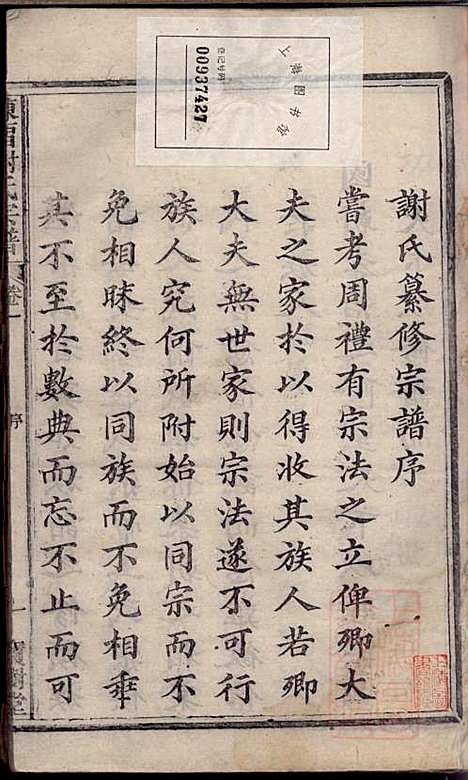 上海图书馆
登记号码
00937427
謝氏纂修宗譜序
嘗考周禮有宗法之立俾卿大
夫之家於以得收其族人若卿
大夫無世家則宗法遂不可行
族人究何所附始以同宗而不
免相眜終以同族而不免相乖
其不至於數典而忘不止而可
陳留謝氏宗譜 卷一 序 一 寶樹堂